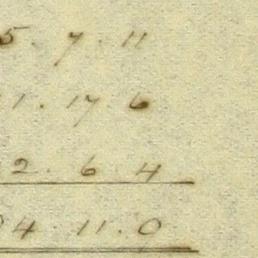 5 . 7 . 11
1 . 17 . 6
2 . 6 . 4
4 . 11 . 0